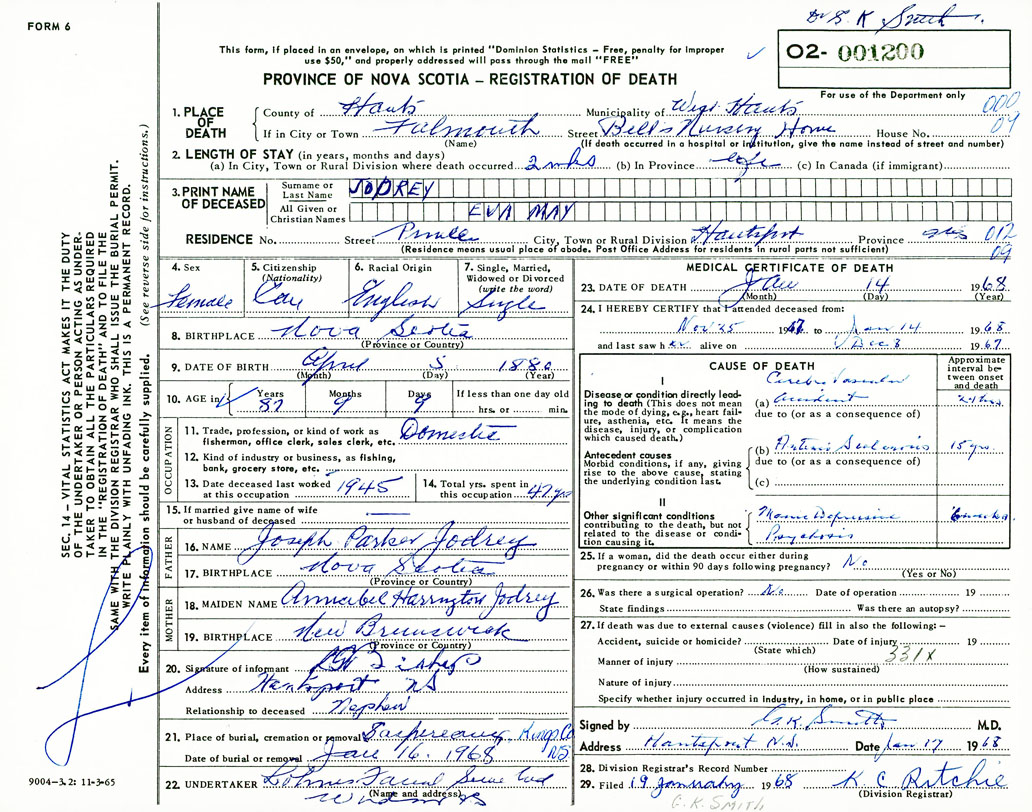 FORM 6
Dr G. K. Smith.
This form, if placed in an envelope, on which is printed "Dominion Statistics – Free, penalty for improper
use $50," and properly addressed will pass through the mail "FREE"
PROVINCE OF NOVA SCOTIA – REGISTRATION OF DEATH
02- 001200
For use of the Department only
1. PLACE OF DEATH
County of Hants Municipality of West Hants 000
If in City or Town Falmouth Street Bell's Nursing Home House No. 09
(Name) (If death occurred in a hospital or institution, give the name instead of street and number)
2. LENGTH OF STAY (in years, months and days)
(a) In City, Town or Rural Division where death occurred 2 wks (b) In Province life (c) In Canada (if immigrant)
3. PRINT NAME OF DECEASED
Surname or Last Name JODREY
All Given or Christian Names EVA MAY
RESIDENCE No. Street City, Town or Rural Division Hantsport Province 012
(Residence means usual place of abode. Post Office Address for residents in rural parts not sufficient) 09
4. Sex Female
5. Citizenship (Nationality) Can
6. Racial Origin English
7. Single, Married, Widowed or Divorced (write the word) Single
8. BIRTHPLACE Nova Scotia
(Province or Country)
9. DATE OF BIRTH April 5 1880
(Month) (Day) (Year)
10. AGE in Years 87 Months 9 Days 9 If less than one day old
hrs. or min.
OCCUPATION
11. Trade, profession, or kind of work as Domestic
fisherman, office clerk, sales clerk, etc.
12. Kind of industry or business, as fishing,
bank, grocery store, etc.
13. Date deceased last worked at this occupation 1945
14. Total yrs. spent in this occupation 47 yrs
15. If married give name of wife
or husband of deceased
FATHER
16. NAME Joseph Parker Jodrey
17. BIRTHPLACE Nova Scotia
(Province or Country)
MOTHER
18. MAIDEN NAME Annabel Harrington Jodrey
19. BIRTHPLACE New Brunswick
(Province or Country)
20. Signature of informant
Address Hantsport NS
Relationship to deceased Nephew
21. Place of burial, cremation or removal Gaspereau, Kings Co NS.
Date of burial or removal Jan 16. 1968
22. UNDERTAKER
(Name and address) Windsor NS
9004–3.2: 11-3-65
SEC. 14 – VITAL STATISTICS ACT MAKES IT THE DUTY
OF THE UNDERTAKER OR PERSON ACTING AS UNDER-
TAKER TO OBTAIN ALL THE PARTICULARS REQUIRED
IN THE "REGISTRATION OF DEATH" AND TO FILE THE
SAME WITH THE DIVISION REGISTRAR WHO SHALL ISSUE THE BURIAL PERMIT.
WRITE PLAINLY WITH UNFADING INK. THIS IS A PERMANENT RECORD.
Every item of information should be carefully supplied. (See reverse side for instructions.)
MEDICAL CERTIFICATE OF DEATH
23. DATE OF DEATH Jan 14 1968
(Month) (Day) (Year)
24. I HEREBY CERTIFY that I attended deceased from:
Nov 25 1967 to Jan 14 1968
and last saw her alive on Dec 8 1967
CAUSE OF DEATH
Approximate interval between onset and death
I
Disease or condition directly leading to death (This does not mean the mode of dying, e.g., heart failure, asthenia, etc. It means the disease, injury, or complication which caused death.)
Cerebro Vascular
(a) accident
due to (or as a consequence of)
Antecedent causes
Morbid conditions, if any, giving rise to the above cause, stating the underlying condition last.
(b) Arterio Sclerosis 15 yrs
due to (or as a consequence of)
(c)
II
Other significant conditions
contributing to the death, but not related to the disease or condition causing it.
Manic Depressive
Psychosis
25. If a woman, did the death occur either during
pregnancy or within 90 days following pregnancy? No
(Yes or No)
26. Was there a surgical operation? No Date of operation 19
State findings Was there an autopsy?
27. If death was due to external causes (violence) fill in also the following: –
Accident, suicide or homicide? Date of injury 19
(State which) 331X
Manner of injury
(How sustained)
Nature of injury
Specify whether injury occurred in industry, in home, or in public place
Signed by G.K. Smith M.D.
Address Hantsport N.S. Date Jan 17 1968
28. Division Registrar's Record Number
29. Filed 19 January 1968 K C Ritchie
G. K. SMITH (Division Registrar)